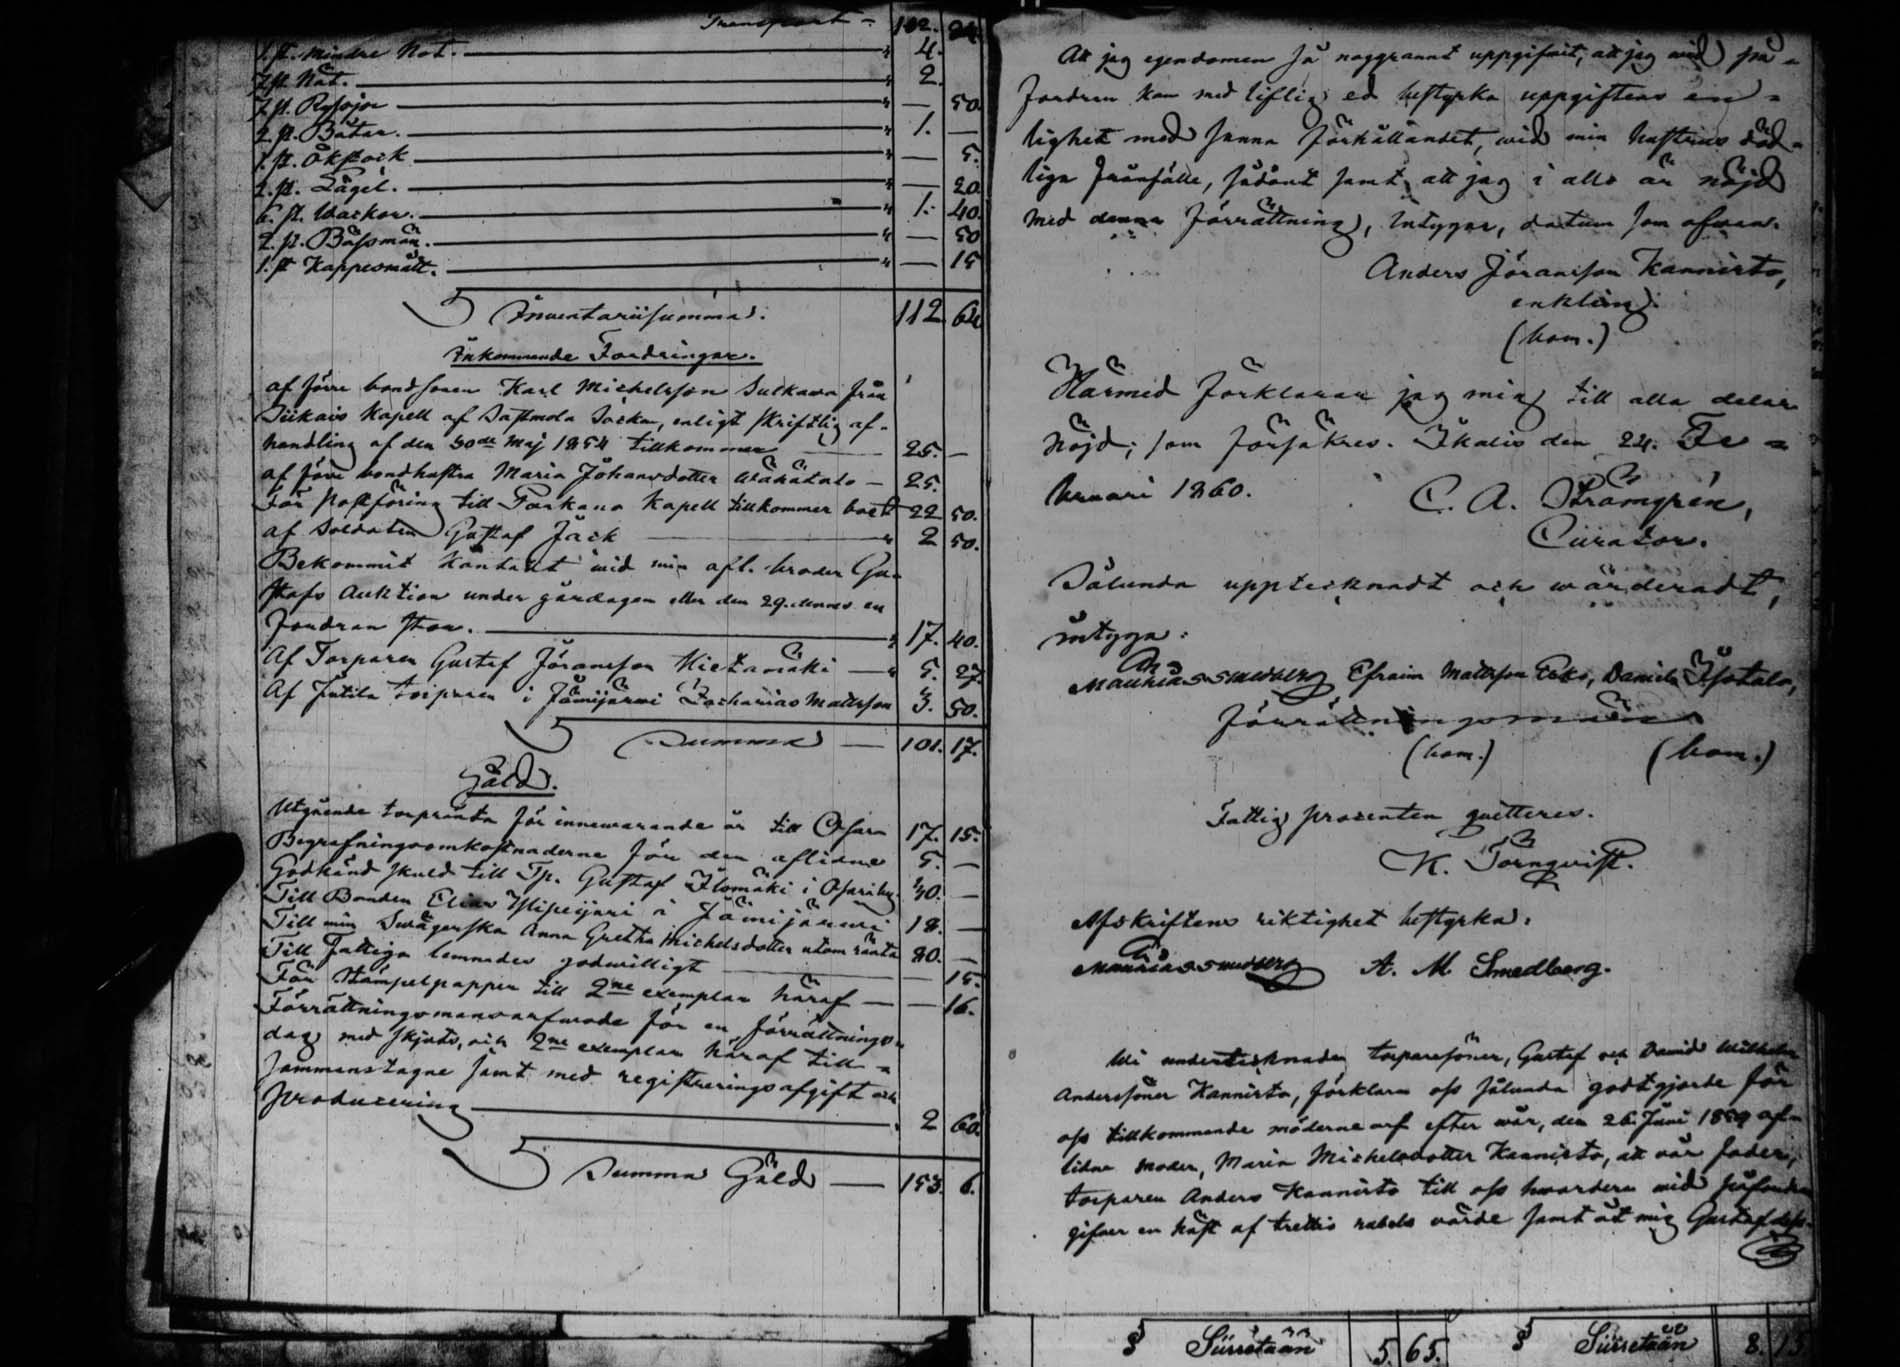 Transport 102. 24
1. st. mindre Not. " 4.
7 st. Nät. " 2.
7 st. Rysjor " — 50
2. st. Båtar. " 1. —
1. st. Ökstock " — 5.
2. st. Lägel. " — 20
6. st. Wackor. " 1. 40.
2. st. Båssmän. " — 50
1. st Kappesmått. " — 15
S Inventarii summa. 112. 64
Inkommande Fordringar.
af förre bondsonen Karl Michelsson Sulkava från
Siikais Kapell af Sastmola Socken, enligt skriftlig af-
handling af den 30de Maj 1854 tillkommer 25. —
af förre bondhustru Maria Johansdotter Wähätalo — 25.
För Postföring till Parkano Kapell tillkommer boet 22 50.
af Soldaten Gustaf Jäck " 2 50.
Bekommit kontant wid min afl. broder Gu-
stafs Auktion under gårdagen eller den 29. dennes en
fordran stor. " 17. 40.
Af Torparen Gustaf Jöransson Kietämäki — " 5. 27
Af Jutila torparen i Jämijärwi Zacharias Mattsson 3. 50.
S Summa — 101. 17.
Gäld.
Utgående torpränta för innewarande år till Osara 17. 15.
Begrafningsomkostnaderne för den aflidne 5. —
Godkänd skuld till Tp. Gustaf Ylömäki i Osaraby. 30. —
Till Bonden Elias Ylipeijari i Jämijärwi 18. —
Till min Swägerska Anna Gretha Michelsdotter utom ränta 80. —
Till Fattiga lemnades godwilligt — 15.
För Stämpelpapper till 2ne exemplar häraf — — 16.
Förrättningsmansarfwode för en förrättnings-
dag med skjuts, och 2ne exemplar häraf till-
sammanstagne samt med registreringsafgift och
producering 2 60.
S Summa Gäld — 153. 6.
Att jag egendomen så noggrannt uppgifwit, att jag wid på-
fordran kan med liflig ed bestyrka uppgiftens en-
lighet med sanna förhållandet, wid min hustrus död-
liga frånfälle, sådant samt att jag i allo är nöjd
med denna förrättning, intygar, datum som ofwan.
Anders Jöransson Kannisto,
enkling.
(bom.)
Härmed förklarar jag mig till alla delar
nöjd; som försäkres. Ikalis den 24. Fe-
bruari 1860. C. A. Strömgrén,
Curator.
Sålunda upptecknadt och wärderadt,
intyga:
Matthias Smedberg Efraim Mattsson Esko, Daniel Isotalo,
förrättningsmän
(bom.) (bom.)
Fattig prosenten quitteres.
K. Törnqvist.
Afskriftens riktighet bestyrka:
Matthias Smedberg A. M. Smedberg.
Wi undertecknade torparesöner, Gustaf och David Wilhelm
Anderssöner Kannisto, förklara oss sålunda godtgjorde för
oss tillkommande möderne arf efter wår, den 26. Juni 1859 af-
lidne moder, Maria Michelsdotter Kannisto, att wår fader,
torparen Anders Kannisto till oss hwardera wid påfordran
gifwer en häst af trettio rubels wärde samt åt mig Gustaf dess-
S Siirretään 5. 65. S Siirretään 8. 15